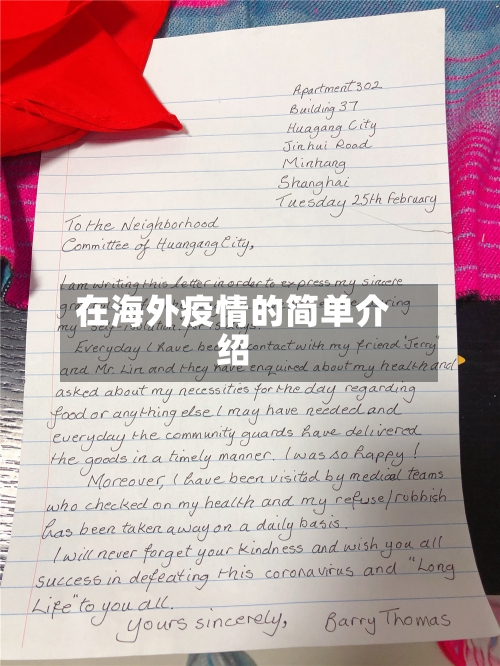 Apartment 302
Building 37
Huagang City
Jinhui Road
Minhang
Shanghai
Tuesday 25th February
To the Neighborhood
Committee of Huangang City,
I am writing this letter in order to express my sincere
在海外疫情的简单介
绍
my
Everyday I have been contact with my friend "Jerry"
and Mr. Lin and they have enquired about my health and
asked about my necessities for the day regarding
food or anything else I may have needed and
everyday the community guards have delivered
the goods in a timely manner. I was so happy!
Moreover, I have been visited by medical teams
who checked on my health and my refuse/rubbish
has been taken away on a daily basis.
I will never forget your kindness and wish you all
success in defeating this coronavirus and "Long
Life" to you all.
Yours sincerely, Barry Thomas